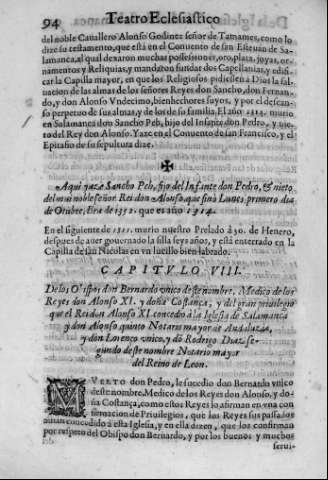 94 Teatro Eclesiastico
del noble Cauallero Alonso Godinez señor de Tamames, como lo
dize su testamento, que está en el Conuento de san Esteuan de Sa-
lamanca, al qual dexaron muchas possessiones, oro, plata, joyas, or-
namentos y Reliquias, y mandaron fundar dos Capellanias, y edifi-
car la Capilla mayor, en que los Religiosos pidiessen a Dios la sal-
uacion de las almas de los señores Reyes don Sancho, don Fernan-
do, y don Alonso Vndecimo, bienhechores suyos, y por el descan-
so perpetuo de sus almas, y de los de su familia. El año 1312. murio
en Salamanca don Sancho Peh, hijo del Infante don Pedro, y nie-
to del Rey don Alonso. Yaze en el Conuento de san Francisco, y el
Epitafio de su sepultura dize.
Aqui yaze Sancho Peh, fijo del Infante don Pedro, & nieto
del mui noble señor Rei don Alonso, que finò Lunes, primero dia
de Otubre, Era de 1352. que es año 1314.
En el siguiente de murio nuestro Prelado à 30. de Henero,
despues de auer gouernado la silla seys años, y está enterrado en la
Capilla de san Nicolas en vn lucillo bien labrado.
CAPITVLO VIII.
De los O'ispos don Bernardo vnico deste nombre, Medico de los
Reyes don Alonso XI. y doña Costança, y del gran priuilegio
que el Rei don Alonso XI. concedo à la Iglesia de Salamanca
y don Alonso quinto Notario mayor de Andaluzia,
y don Lorenço vnico, y dõ Rodrigo Diaz, se-
gundo deste nombre Notario mayor
del Reino de Leon.
VERTO don Pedro, le sucedio don Bernardo vnico
deste nombre, Medico de los Reyes don Alonso, y do-
ña Costança, como estos Reyes lo afirman en vna con-
firmacion de Priuilegios, que los Reyes sus passados
auian concedido à esta Iglesia, y en ella dizen, que los confirman
por respeto del Obispo don Bernardo, y por los buenos y muchos
serui-